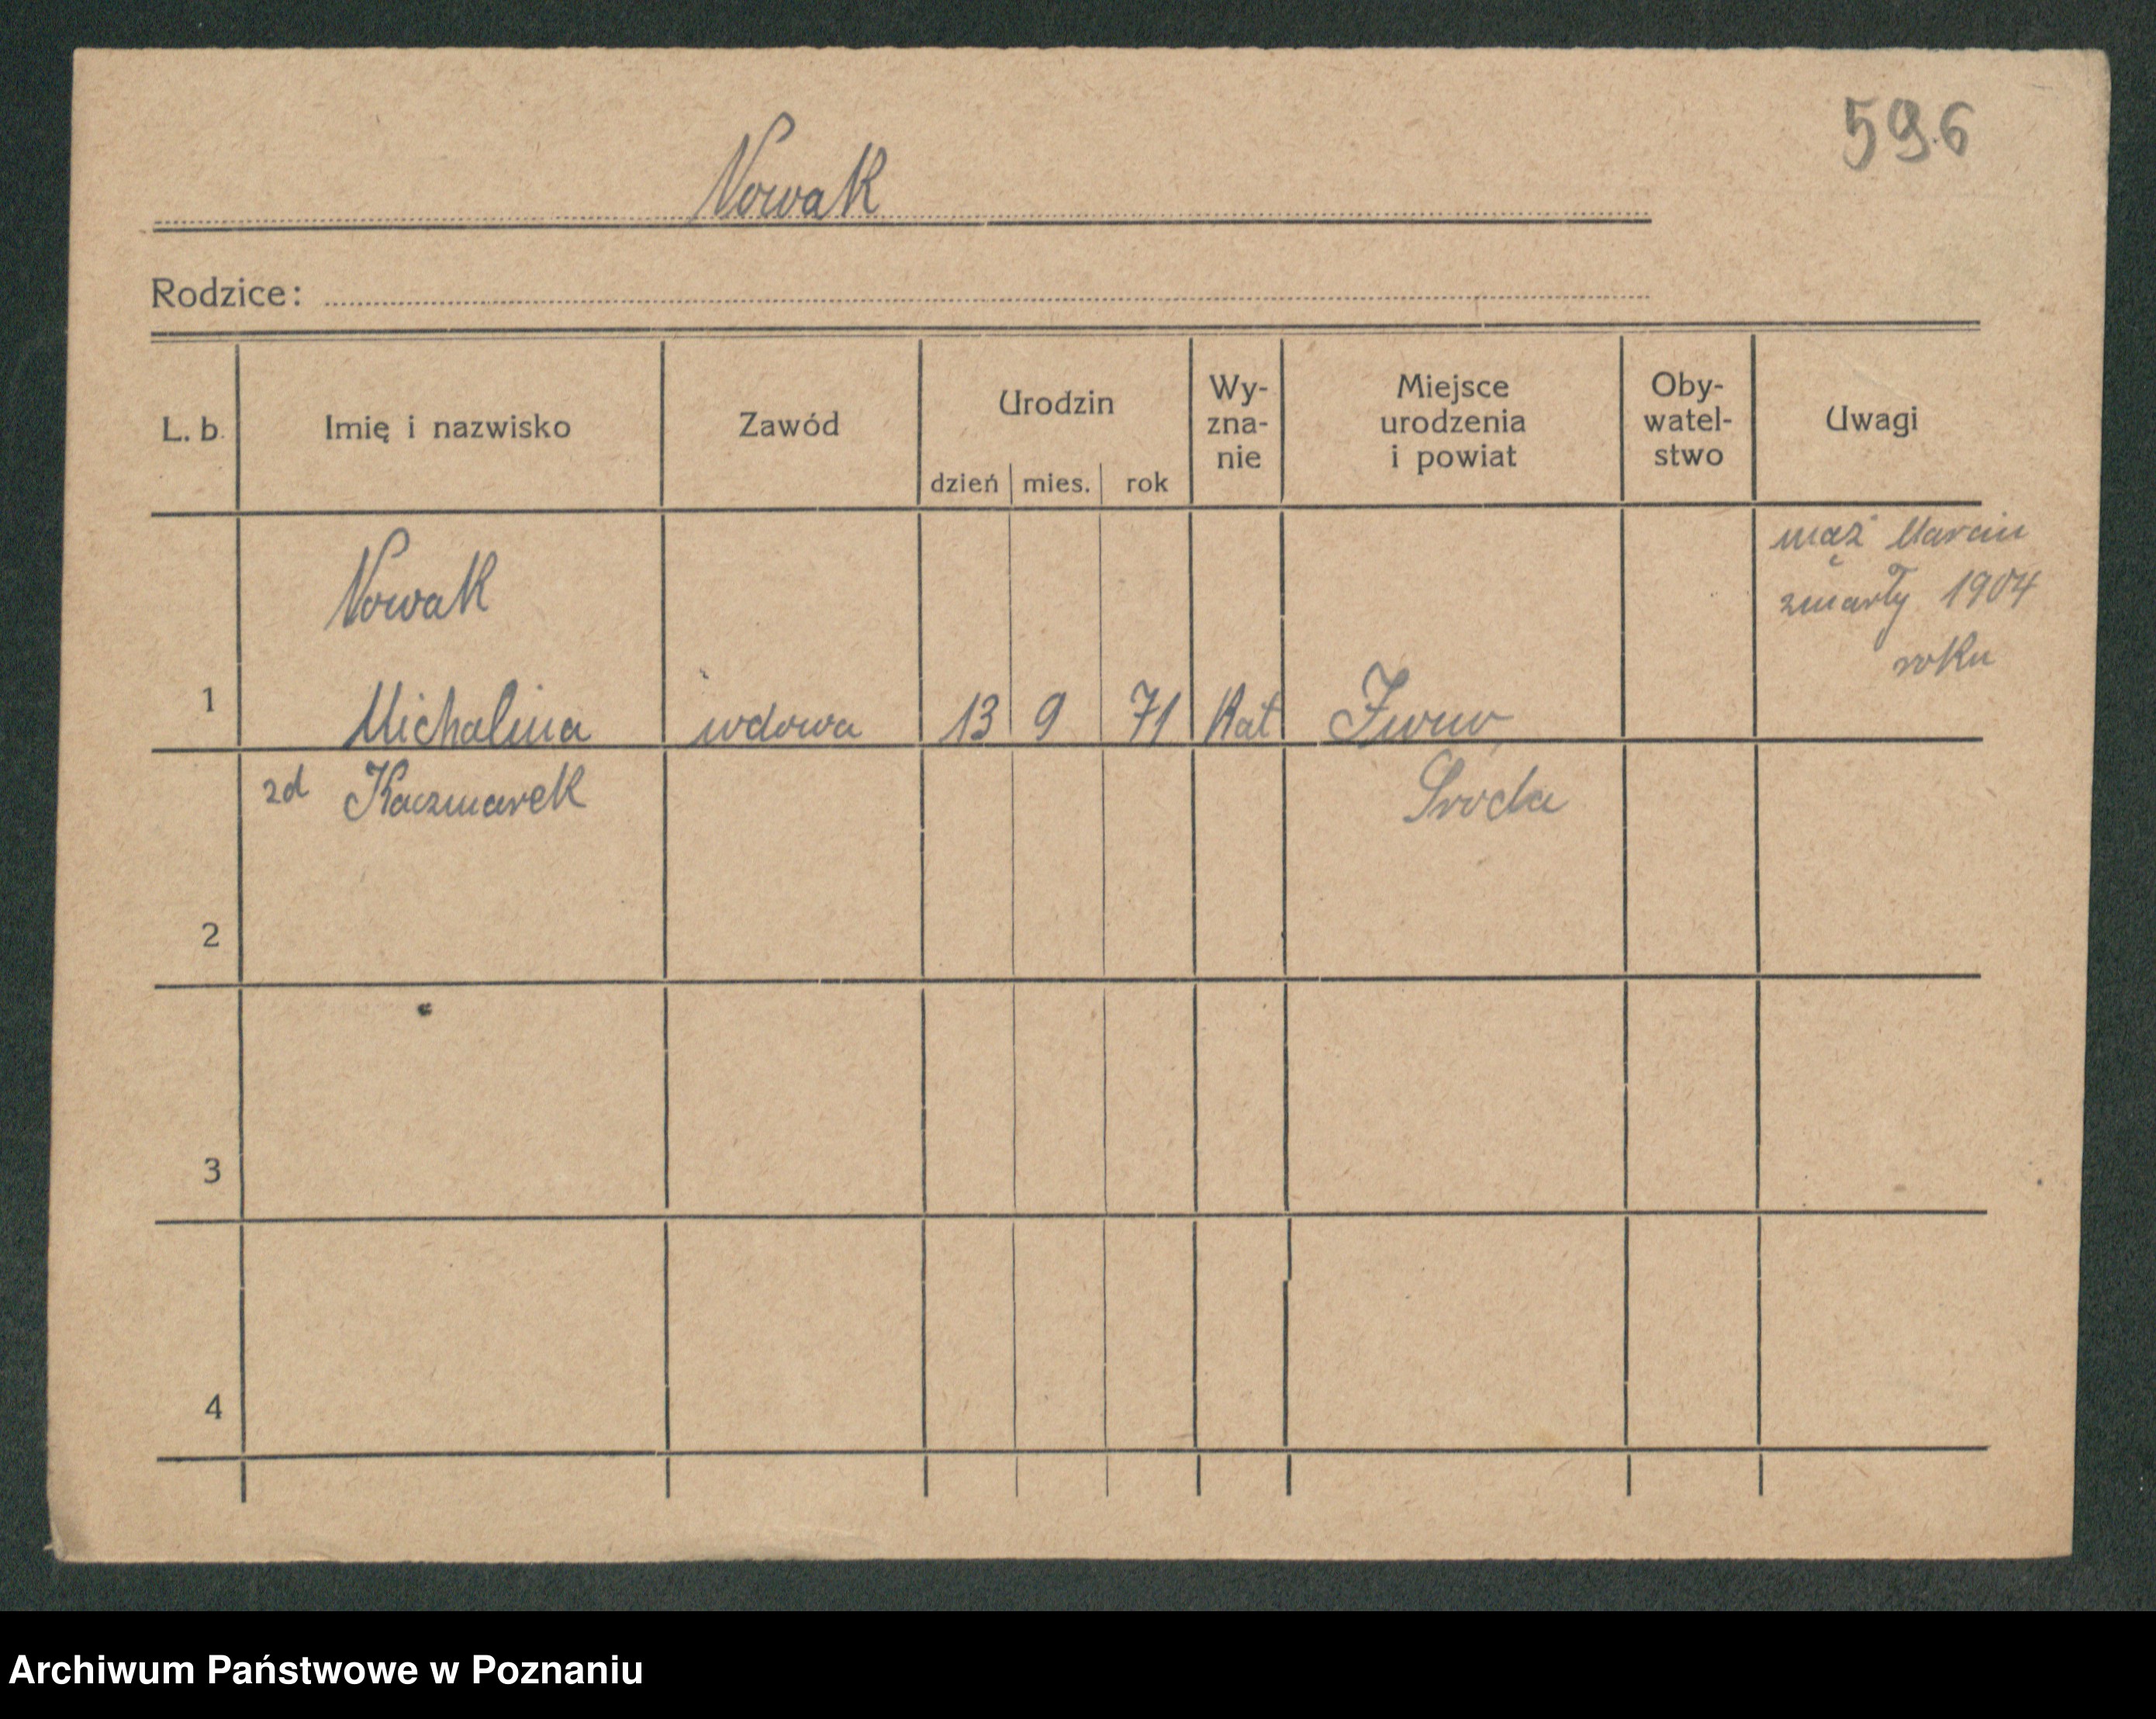 596
Nowak
Rodzice:
L. b. Imię i nazwisko Zawód Urodzin Wy- Miejsce Oby- Uwagi
zna- urodzenia watel-
nie i powiat stwo
dzień mies. rok
mąż Marcin
Nowak zmarły 1904
roku
1 Michalina wdowa 13 9 71 Kat
zd Kaczmarek Sroda
2
3
4
Archiwum Państwowe w Poznaniu